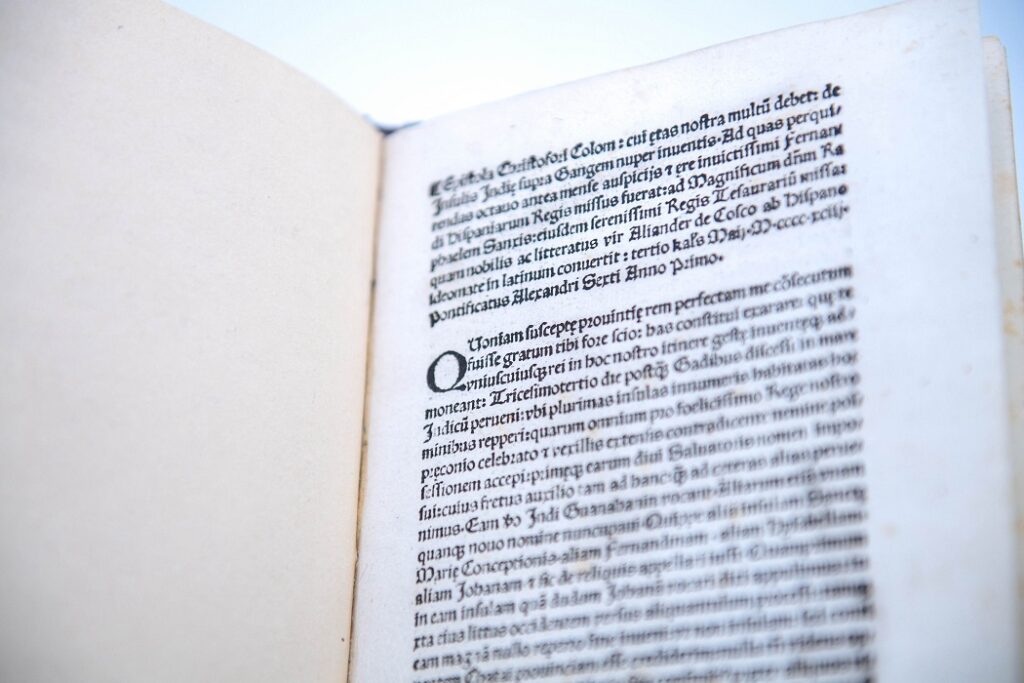 ¶ Epistola Christofori Colom: cui ętas nostra multū debet: de
Insulis Indię supra Gangem nuper inuentis. Ad quas perqui-
rendas octauo antea mense auspicijs ⁊ ęre inuictissimi Fernan
di Hispaniarum Regis missus fuerat: ad Magnificum dñm Ra
phaelem Sanxis: eiusdem serenissimi Regis Tesaurariū missa:
quam nobilis ac litteratus vir Aliander de Cosco ab Hispano
ideomate in latinum conuertit: tertio kaĺs Maij. M.cccc.xciij.
Pontificatus Alexandri Sexti Anno Primo.
QUoniam susceptę prouintię rem perfectam me cōsecutum
fuisse gratum tibi fore scio: has constitui exarare: quę te
vniuscuiusqꝫ rei in hoc nostro itinere gestę inuentęqꝫ ad-
moneant: Tricesimotertio die postqꝫ Gadibus discessi in mare
Indicū perueni: vbi plurimas insulas innumeris habitatas ho-
minibus repperi: quarum omnium pro foelicissimo Rege nostro
pręconio celebrato ⁊ vexillis extensis contradicente nemine pos-
sessionem accepi: primęqꝫ earum diui Saluatoris nomen impo-
sui: cuius fretus auxilio tam ad hanc: qꝫ ad cęteras alias perue-
nimus. Eam ꝟo Indi Guanahanin vocant. Aliarum etiā vnam
quanqꝫ nouo nomine nuncupaui. Quippe aliā insulam Sanctę
Marię Conceptionis. aliam Fernandinam. aliam Hysabellam.
aliam Johanam ⁊ sic de reliquis appellari iussi. Quamprimum
in eam insulam quā dudum Johanā vocari dixi appulimus: iu
xta eius littus occidentem versus aliquantulum processi: tamqꝫ
eam magnā nullo reperto fine inueni: vt non insulam: sed conti
nentem Chatai prouinciam esse crediderim: nulla tñ videns op